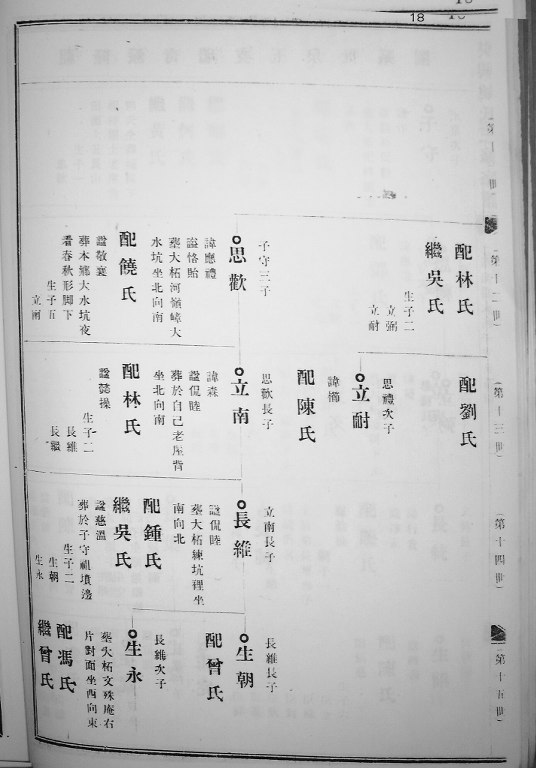 18
(第十一世)
(第十二世)
配林氏
繼吳氏
生子二
立弼
立耐
子守三子
思歡
諱應禮
謚恪貽
塟大柘河嶺嶂大
水坑坐北向南
配饒氏
諡敬襄
葬本鄉大水坑夜
看春秋形脚下
生子五
立南
(第十三世)
配劉氏
思禮次子
立耐
配陳氏
思歡長子
立南
諱森
諡侃睦
葬於自己老屋背
坐北向南
配林氏
諡懿操
生子二
長維
長繼
(第十四世)
立南長子
長維
諡侃睦
塟大柘練坑裡坐
南向北
配鍾氏
繼吳氏
諡慈溫
葬於子守祖墳邊
生子二
生朝
生永
(第十五世)
長維長子
生朝
配曾氏
長維次子
生永
塟大柘文殊庵右
片對面坐西向東
配馮氏
繼曾氏